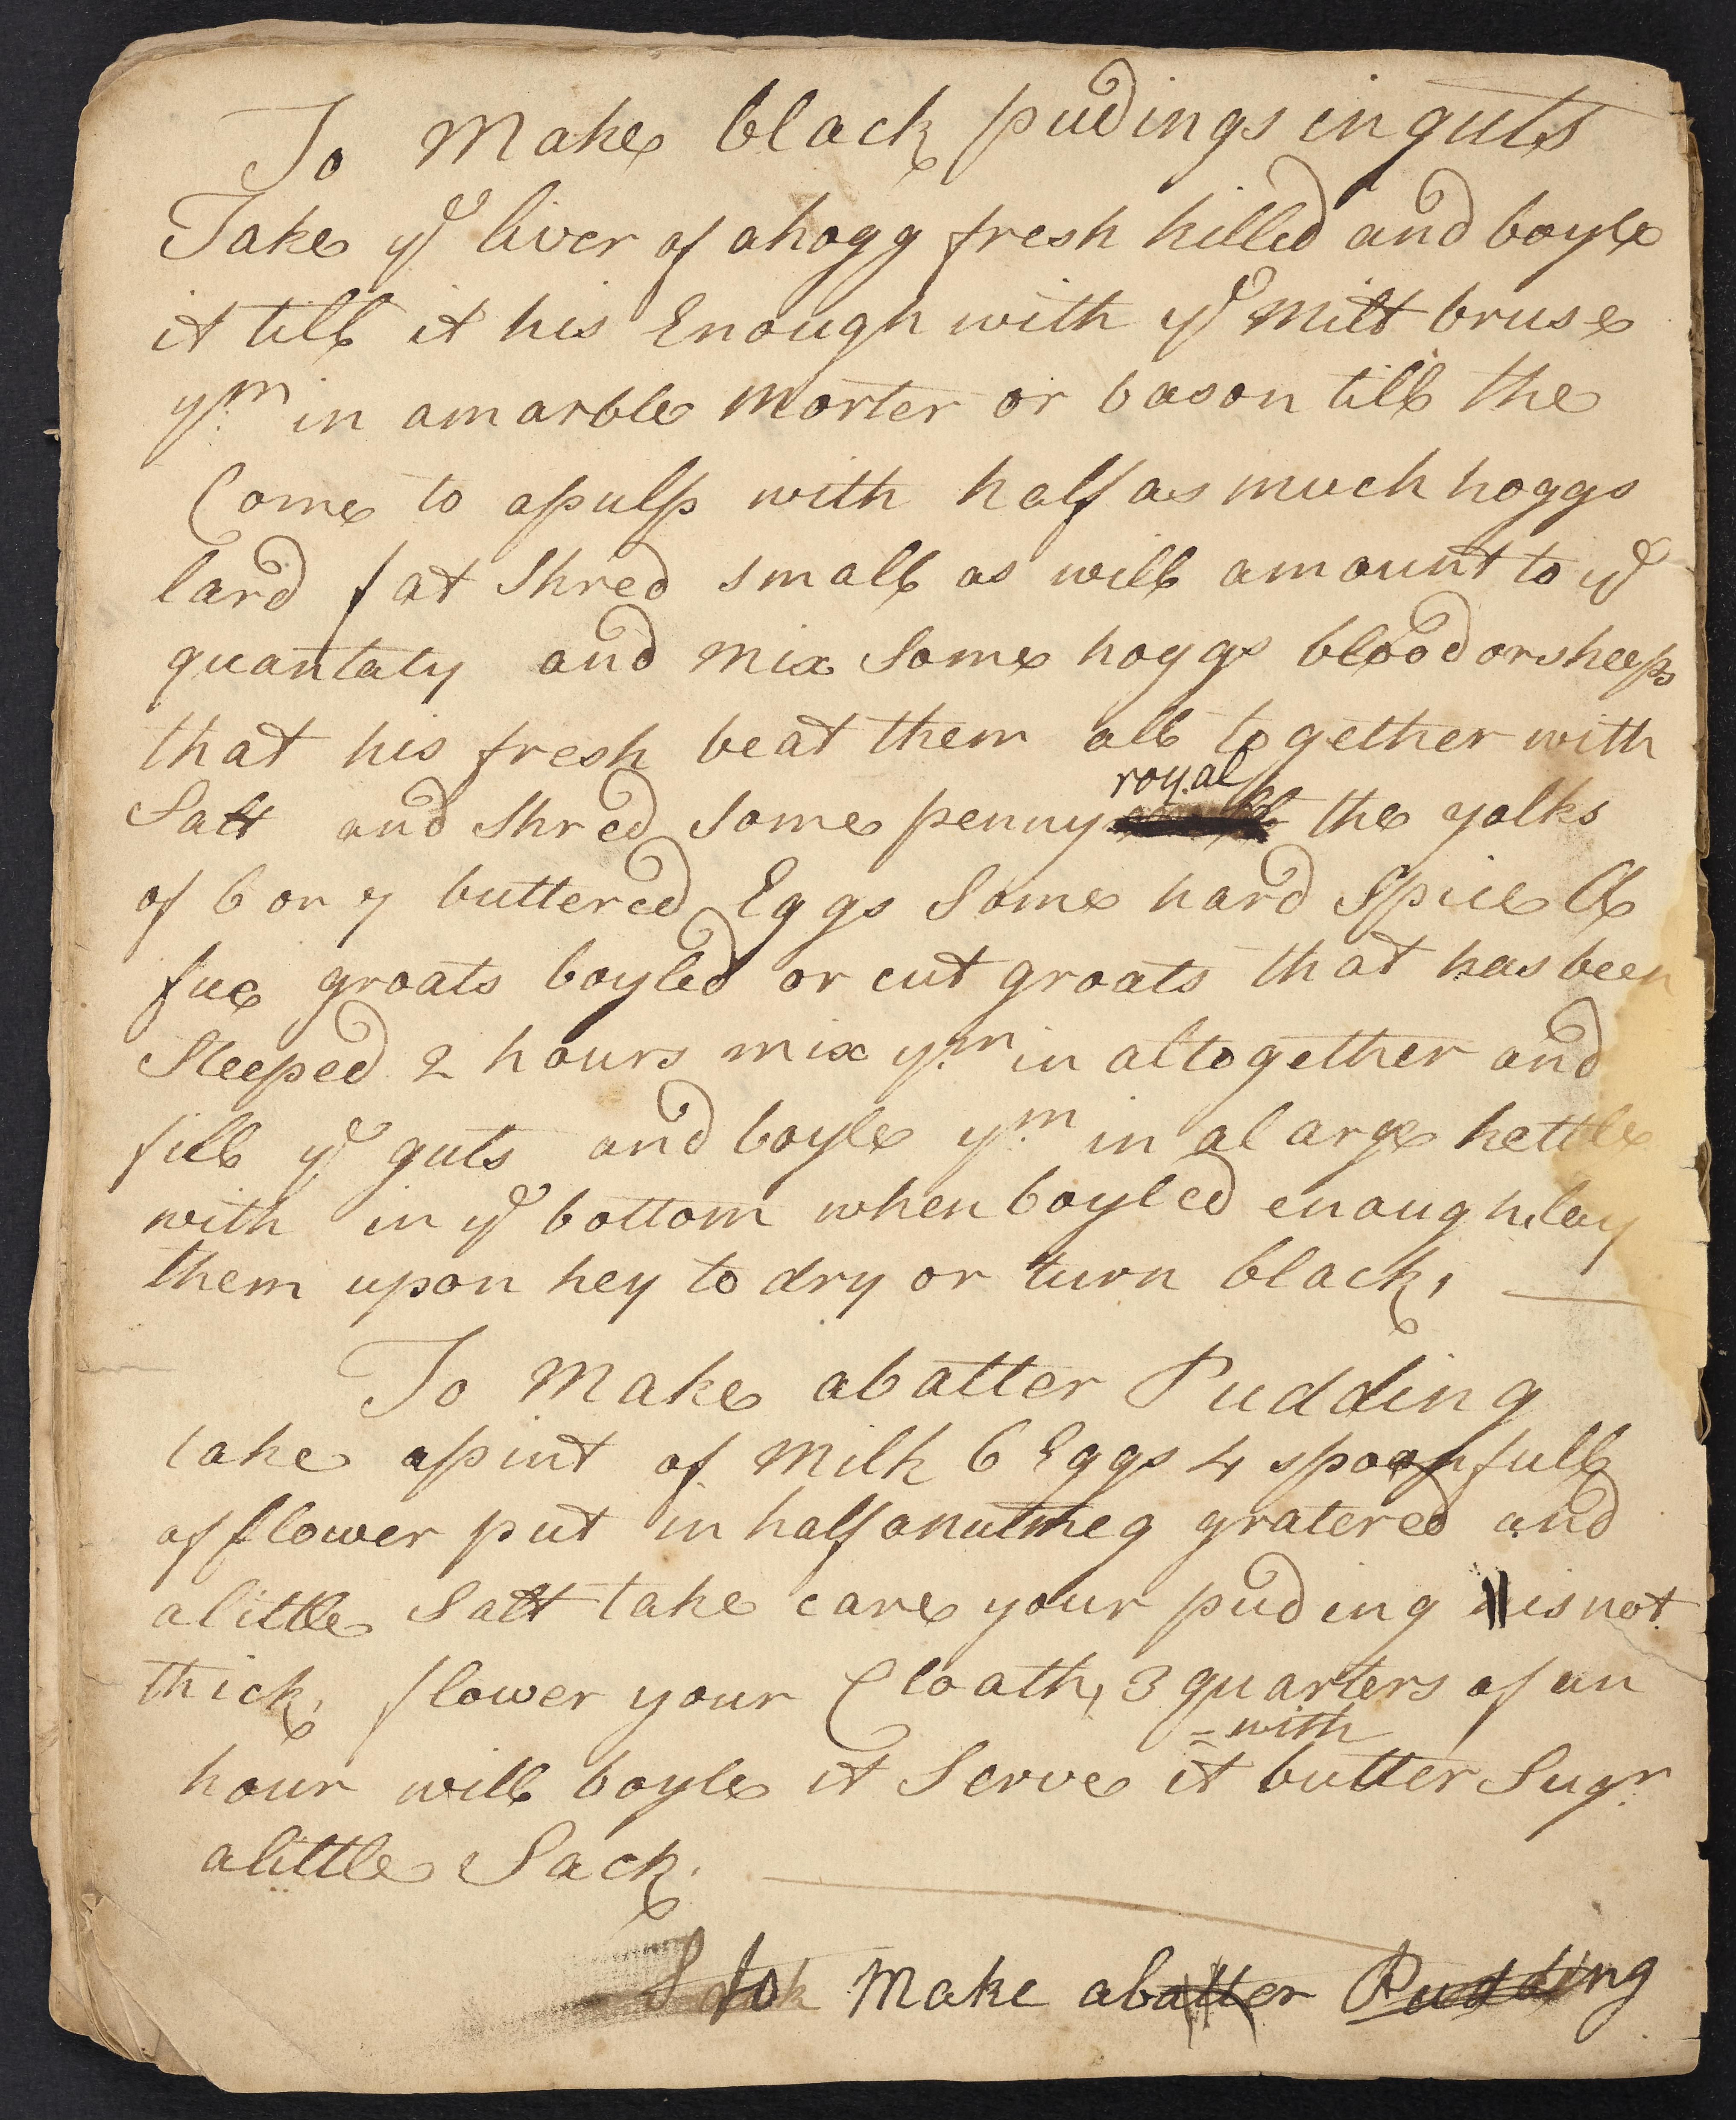 To Make black pudings in guts
Take ye liver of a hogg fresh killed and boyle
it till it his Enough with ye Milt bruse
ym in a marble Morter or bason till the
Come to a pulp with half as much hoggs
lard fat Shred small as will amount to ye
quantaty and Mix Some hoggs blood or sheeps
that his fresh beat them all together with
royal
Salt and Shred Some penny the yolks
of 6 or 7 buttered Eggs Some hard Spice &
fue groats boyled or cut groats that has been
Steeped 2 hours mix ym in altogether and
fill ye guts and boyle ym in a large kettle
with in ye bottom when boyled enough lay
them upon hey to dry or turn black,
To Make a batter Pudding
take a pint of Milk 6 Eggs 4 spoonfull
of flower put in half a nutmeg gratered and
a little Salt take care your puding is not
thick, flower your Cloath, 3 quarters of an
with
hour will boyle it Serve it butter Sugr
a little Sack.
To Make a batter Pudding